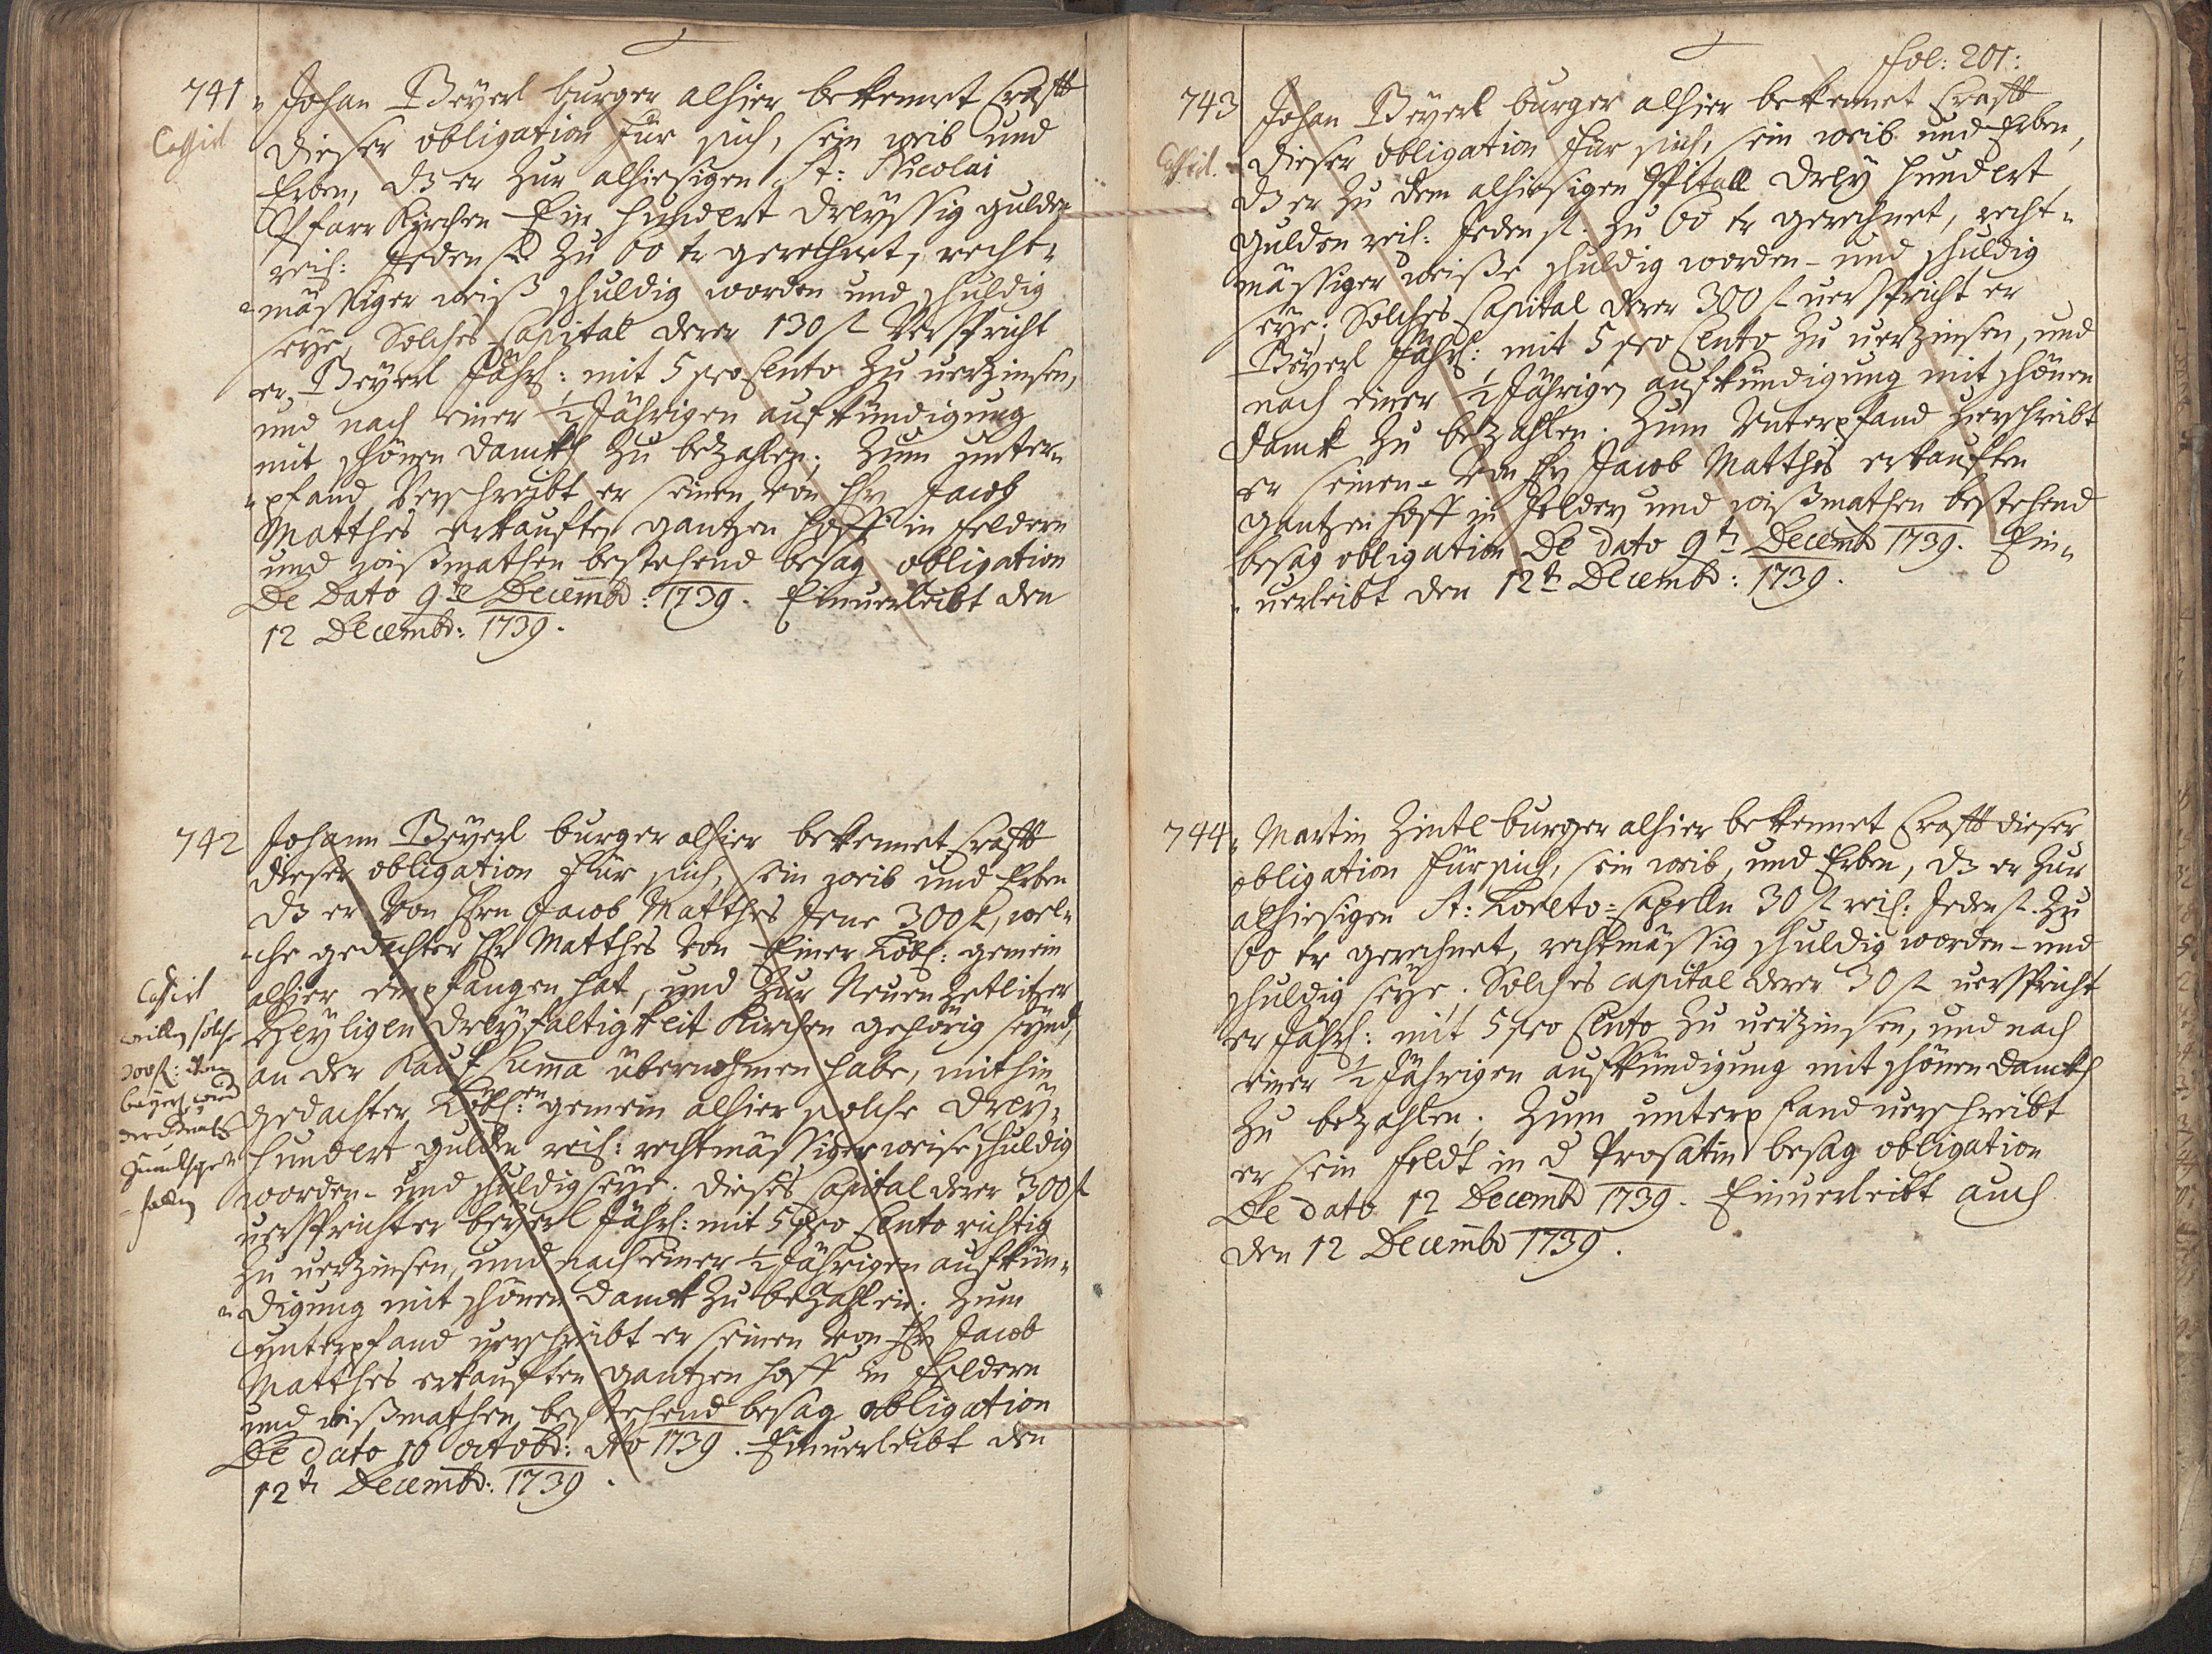 741
Johan Beyerl burger alhier bekennet Crafft
Cassirt
dieser obligation für sich, sein weib und
Erben, dz er zur alhiesigen St: Nicolai
Pfarr Kirchen Ein hundert dreyssig gulden
reih: Jeden fl zu 60 kr gerechnet, recht-
mässiger weiß schuldig worden und schuldig
seye, Solches Capital derer 130 fl Verspricht
er Beyerl Jährl: mit 5 pro Cento zu verzinsen,
und nach einer ½ Jährigen aufkündigung
mit schönen danckh zu bezahlen; Zum unter-
pfand Verschreibt er seinen von Hr Jacob
Matthes erkaufften gantzen Hoff in feldern
und wißmathen bestehend besag obligation
De Dato 9te Decembr: 1739. Einverleibt den
12 Decembr: 1739.
742
Johann Beyerl burger alhier bekennet Crafft
dieser obligation für sich, sein weib und Erben
dz er von Hrn Jacob Matthes Jene 300 fl, wel-
che gedachter Hr Matthes von Einer Löbl: gemein
alhier empfangen hat, und zur Neuen Zetlitzer
Heyligen dreyfaltigkeit Kirchen gehörig seynd,
an der Kauf Summa übernohmen habe, mithin
gedachter Löbl:en gemein alhier solche drey-
hundert gulden reih: rechtmässiger weise schuldig
worden- und schuldig seye. dieses Capital derer 300 fl
verspricht er beyerl Jährl: mit 5 pro Cento richtig
zu verzinsen, und nach einer ½ Jährigen aufkün-
digung mit schönen danck zu bezahlen; Zum
unterpfand verschreibt er seinen von Hr Jacob
Matthes erkaufften gantzen hoff in feldern
und wißmathen bestehend besag obligation
De dato 16 octobr: Ao 1739. Einverleibt den
12tn Decembr: 1739.
Cassirt
willen solche
300 fl: dem
beyerl
fol: 201:
743
Johan Beyerl burger alhier bekennet Crafft
Cassirt.
dieser obligation für sich, sein weib und Erben,
dz er zu dem alhiesigen Spitall drey hundert
Gulden reih: Jeden fl. zu 60 kr gerechnet, recht-
mässiger weiße schuldig worden- und schuldig
seye; Solches Capital derer 300 fl verspricht er
Beyerl Jährl: mit 5 pro Cento zu verzinsen, und
nach einer ½ Jährigen aufkündigung mit schönen
danck zu bezahlen. Zum Unterpfand verschreibt
er seinen- von Hr Jacob Matthes erkaufften
gantzen hoff in feldern und wißmathen bestehend
besag obligation De dato 9tn Decembr 1739. Ein-
verleibt den 12tn Decembr: 1739.
744
Martin Zintl burger alhier bekennet Crafft dieser
obligation für sich, sein weib, und Erben, dz er zur
alhiesigen St: Loreto-Capelln 30 fl reih: Jeden fl. zu
60 kr gerechnet, rechtmässig schuldig worden- und
schuldig seye; Solches Capital derer 30 fl verspricht
er Jährl: mit 5 pro Cento zu verzinsen, und nach
einer ½ Jährigen aufkündigung mit schönen danckh
zu bezahlen; Zum unterpfand verschreibt
er sein feldt in d Prosatin besag obligation
De dato 12 Decembr 1739. Einverleibt auch
den 12 Decembr 1739.